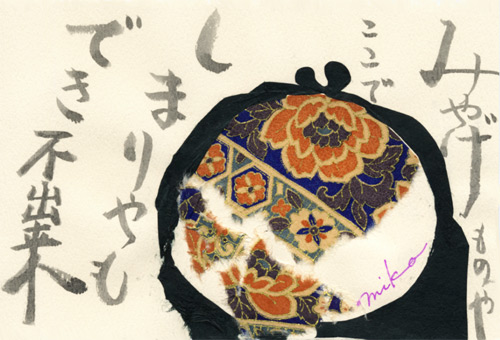 みやげものや
ここで
しまりやも
でき不出来
mika